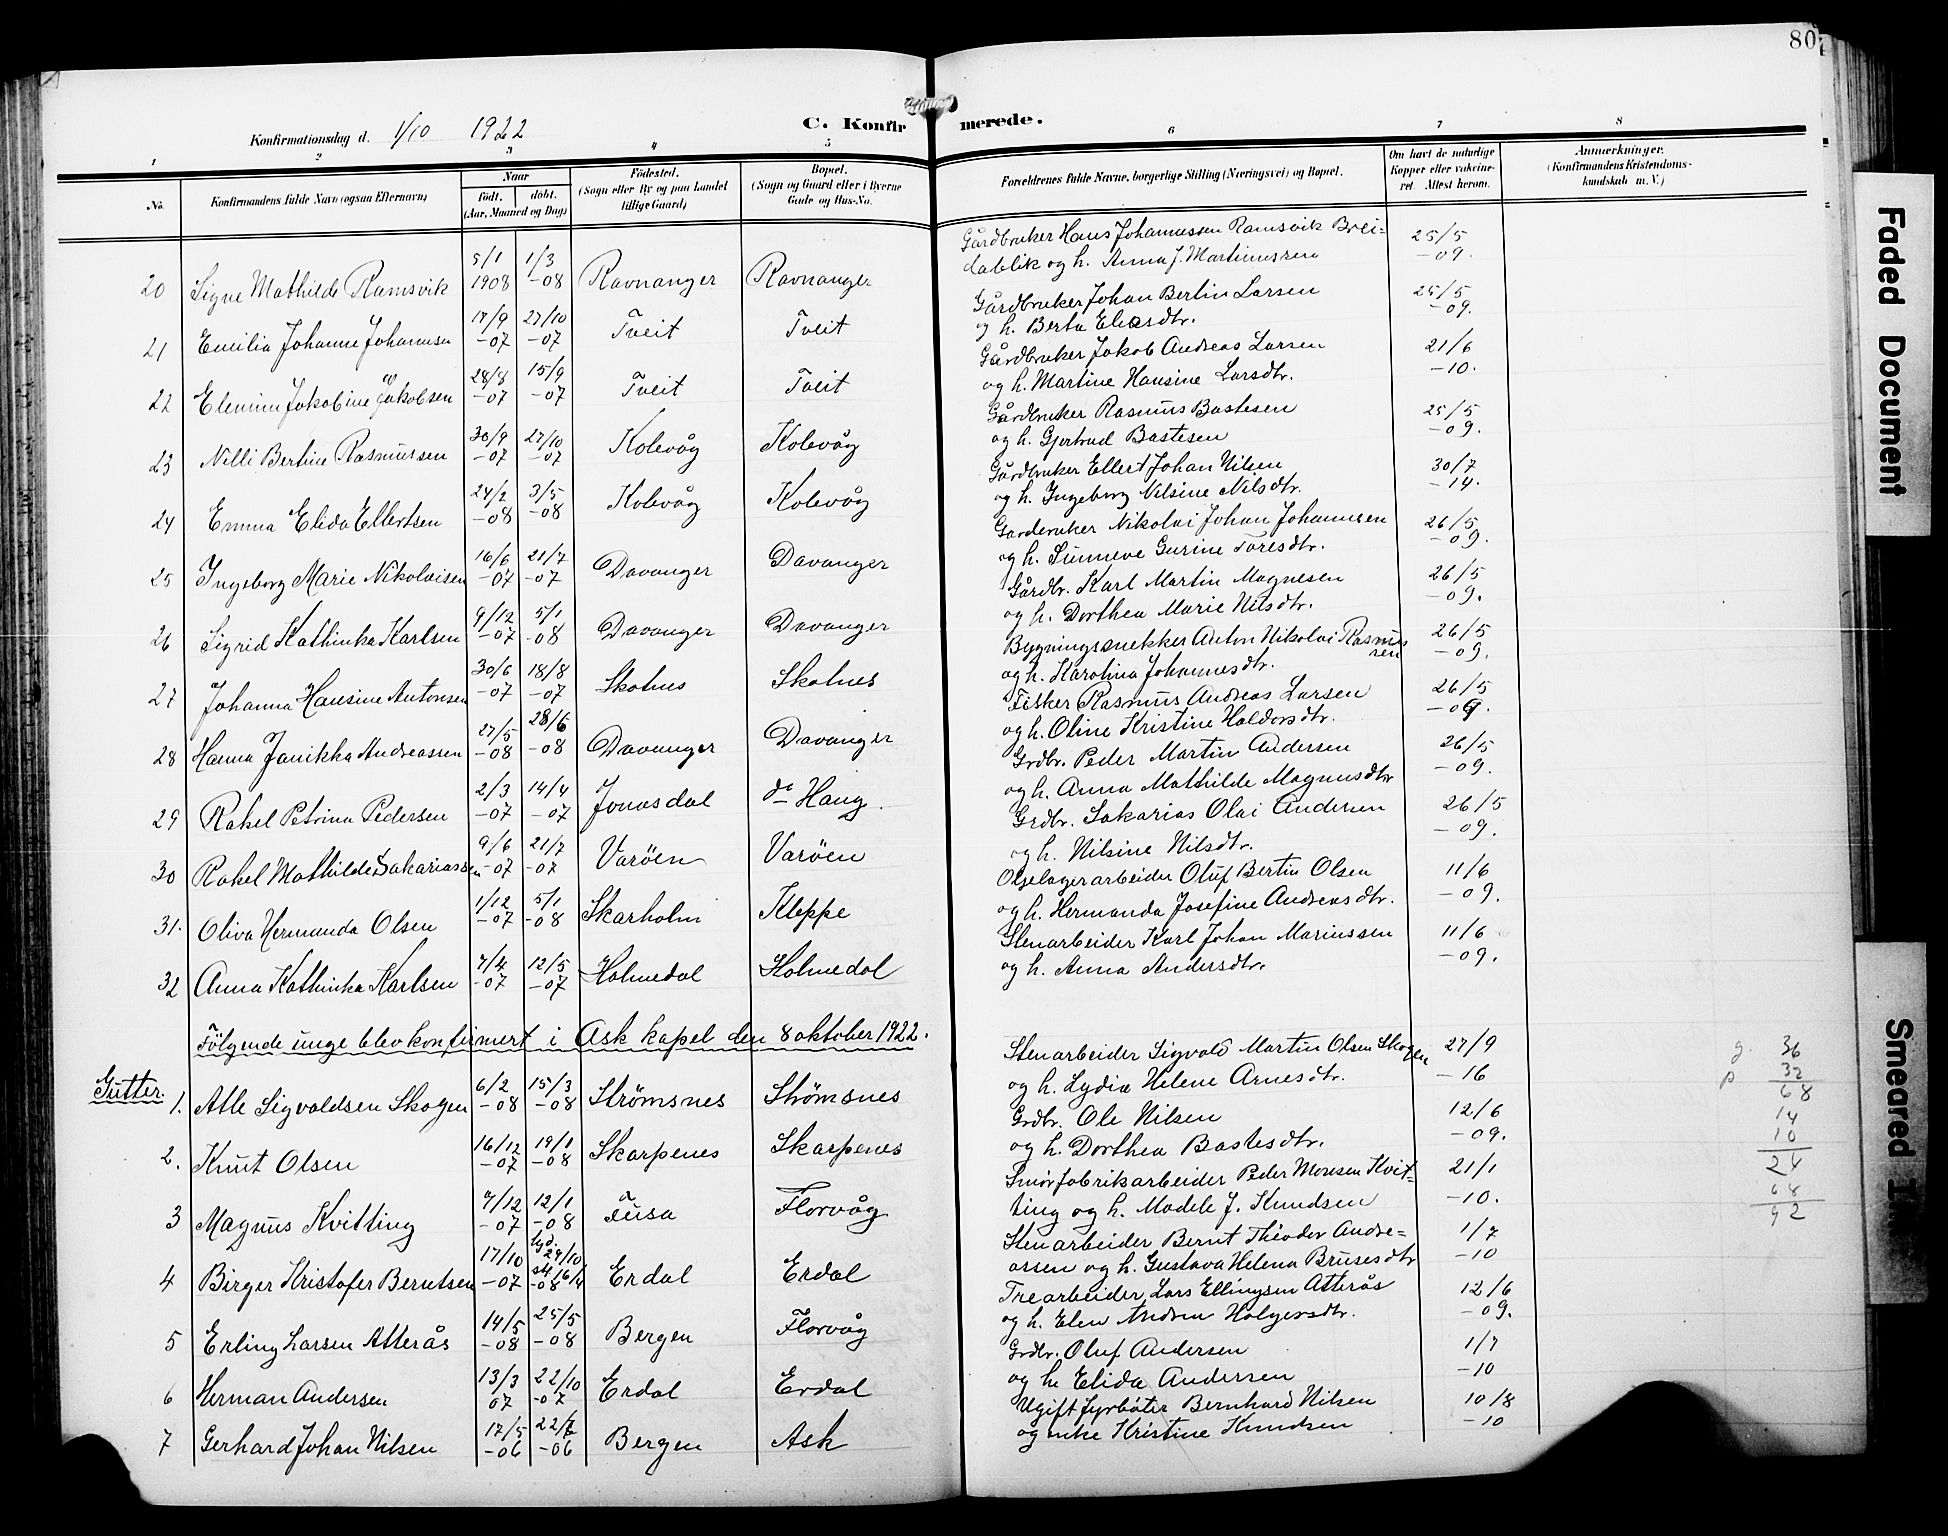 80
C. Konfirmerede.
Konfirmationsdag d. 1/10 1922
1 2 3 4 5 6 7 8
No. Konfirmandens fulde Navn (ogsaa Efternavn) Naar født. døbt. (Aar, Maaned og Dag) Fødested. (Sogn eller By og paa Landet tillige Gaard) Bopæl. (Sogn og Gaard eller i Byerne Gade og Hus-No. Forældrenes fulde Navne, borgerlige Stilling (Næringsvei) og Bopæl. Om havt de naturlige Kopper eller vaccineret. Attest herom. Anmærkninger. (Konfirmandens Kristendomskundskab m. V.)
20 Signe Mathilde Ramsvik 5/1 1908 1/3 -08 Ravnanger Ravnanger Gårdbruker Hans Johannessen Ramsvik Breidablik og h. Anna J. Martinussen 25/5 -09.
21 Emilia Johanne Johannsen 17/9 -07 27/10 -07 Tveit Tveit Gårdbruker Johan Bertin Larsen og h. Berta Eliasdtr. 25/5 -09.
22 Jakobine Jakobsen 28/8 -07 15/9 -07 Tveit Tveit Gårdbruker Jakob Andreas Larsen og h. Martine Hansine Larsdtr. 21/6 -10.
23 Nilli Bertine Rasmussen 30/9 -07 27/10 -07 Kolevåg Kolevåg Gårdbruker Rasmus Bastesen og h. Gjertrud Bastesen 25/5 -09.
24 Emma Elida Ellertsen 24/2 -08 3/5 -08 Kolevåg Kolevåg Gårdbruker Ellert Johan Nilsen og h. Ingeborg Nilsine Nilsdtr. 30/7 -14.
25 Ingeborg Marie Nikolaisen 16/6 -07 21/7 -07 Davanger Davanger Gardbruker Nikolai Johan Johannsen og h. Sunneve Gurine Toresdtr. 26/5 -09.
26 Sigrid Kathinka Karlsen 9/12 -07 5/1 -08 Davanger Davanger Gårdbr. Karl Martin Magnesen og h. Dorthea Marie Nilsdtr. 26/5 -09.
27 Johanna Hansine Antonsen 30/6 -07 18/8 -07 Skolnes Skolnes Bygningssnekker Anton Nikolai Rasmussen og h. Karolina Johannesdtr. 26/5 -09.
28 Hanna Janikka Andreassen 27/5 -08 28/6 -08 Davanger Davanger Fisker Rasmus Andreas Larsen og h. Oline Kristine Haldorsdtr. 26/5 -09.
29 Rakel Petrina Pedersen 2/3 -07 14/4 -07 Jonasdal do Haug. Grdbr. Peder Martin Andersen og h. Anna Mathilde Magnusdtr 26/5 -09.
30 Rakel Mathilde Sakariassen 9/6 -07 21/7 -07 Varöen Varöen Grdbr. Sakarias Olai Andersen og h. Nilsine Nilsdtr. 26/5 -09.
31. Oliva Hermanda Olsen 1/12 -07 5/1 -08 Skarholm Kleppe Oljelagerarbeider Oluf Bertin Olsen og h. Hermanda Josefine Andreasdtr. 11/6 -09.
32 Anna Kathinka Karlsen 7/4 -07 12/5 -07 Holmedal Holmedal Stenarbeider Karl Johan Mariussen og h. Anna Andersdtr. 11/6 -09.
Følgende unge blev konfirmert i Ask kapel den 8 oktober 1922.
Gutter.
1. Atle Sigvaldsen Skogen 6/2 -08 15/3 -08 Strömsnes Strømsnes Stenarbeider Sigvald Martin Olsen Skogen og h. Lydia Helene Arnesdtr. 27/9 -16
2. Knut Olsen 16/12 -07 19/1 -08 Skarpenes Skarpenes Grdbr. Ole Nilsen og h. Dorthea Bastesdtr. 12/6 -09.
3 Magnus Kvitting 7/12 -07 12/1 -08 Fusa Florvåg Smörfabrikarbeider Peder Monsen Kvitting og h. Madele J. Knudsen 21/1 -10.
4 Birger Kristofer Berntsen 17/10 -07 29/10 st. 16/4 -08 Erdal Erdal Stenarbeider Bernt Theodor Andreassen og h. Gustava Helena Brusesdtr 1/7 -10
5 Erling Larsen Atterås 14/5 -08 25/5 -08 Bergen Florvåg Trearbeider Lars Ellingsen Atterås og h. Elen Andrea Holgersdtr. 12/6 -09.
6 Herman Andersen 13/3 07 22/10 -07 Erdal Erdal Grdbr. Oluf Andersen og h. Elida Andersen 1/7 -10
7 Gerhard Johan Nilsen 17/5 -06 22/7 -06 Bergen Ask Ugift fyrbøter Bernhard Nilsen og enke Kristine Knudsen 10/8 -10
g. 36
p 32
68
14
10
24
68
92
Faded Document
Smeared